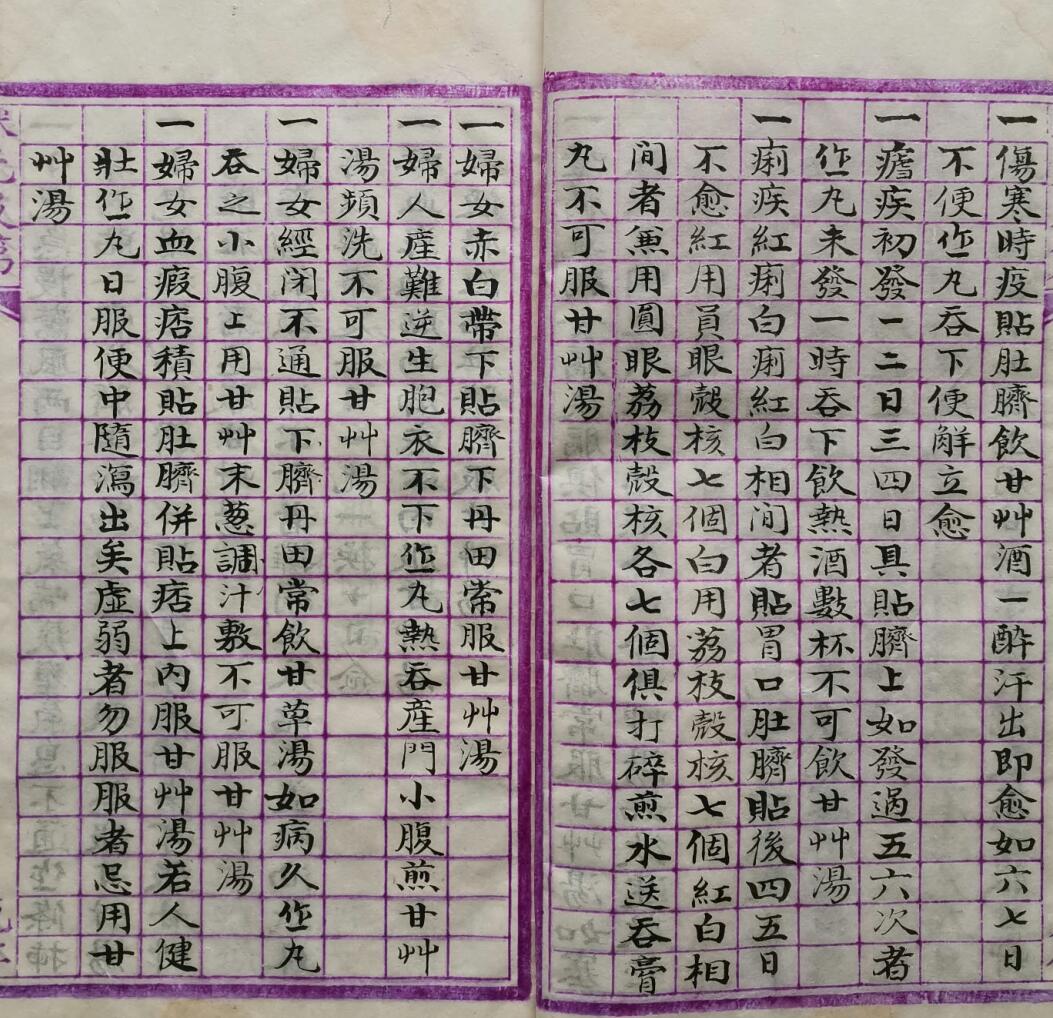 一傷寒時疫貼肚臍飲甘艸酒一醉汗出即愈如六七日
不便作丸吞下便解立愈
一瘧疾初發一二日三四日具貼臍上如發過五六次者
作丸未發一時吞下飲熱酒數杯不可飲甘艸湯
一痢疾紅痢白痢紅白相间者貼胃口肚臍貼後四五日
不愈紅用員眼殼核七個白用荔枝殼核七個紅白相
间者兼用圓眼荔枝殼核各七個俱打碎煎水送吞膏
丸不可服甘艸湯
一婦女赤白帶下貼臍下丹田常服甘艸湯
一婦人產難逆生胞衣不下作丸熱吞產門小腹煎甘艸
湯頻洗不可服甘艸湯
一婦女經闭不通貼下臍丹田常飲甘草湯如病久作丸
吞之小腹上用甘艸末蔥調汁敷不可服甘艸湯
一婦女血瘕痞積貼肚臍併貼痞上內服甘艸湯若人健
壯作丸日服便中隨瀉出矣虛弱者勿服服者忌用甘
艸湯